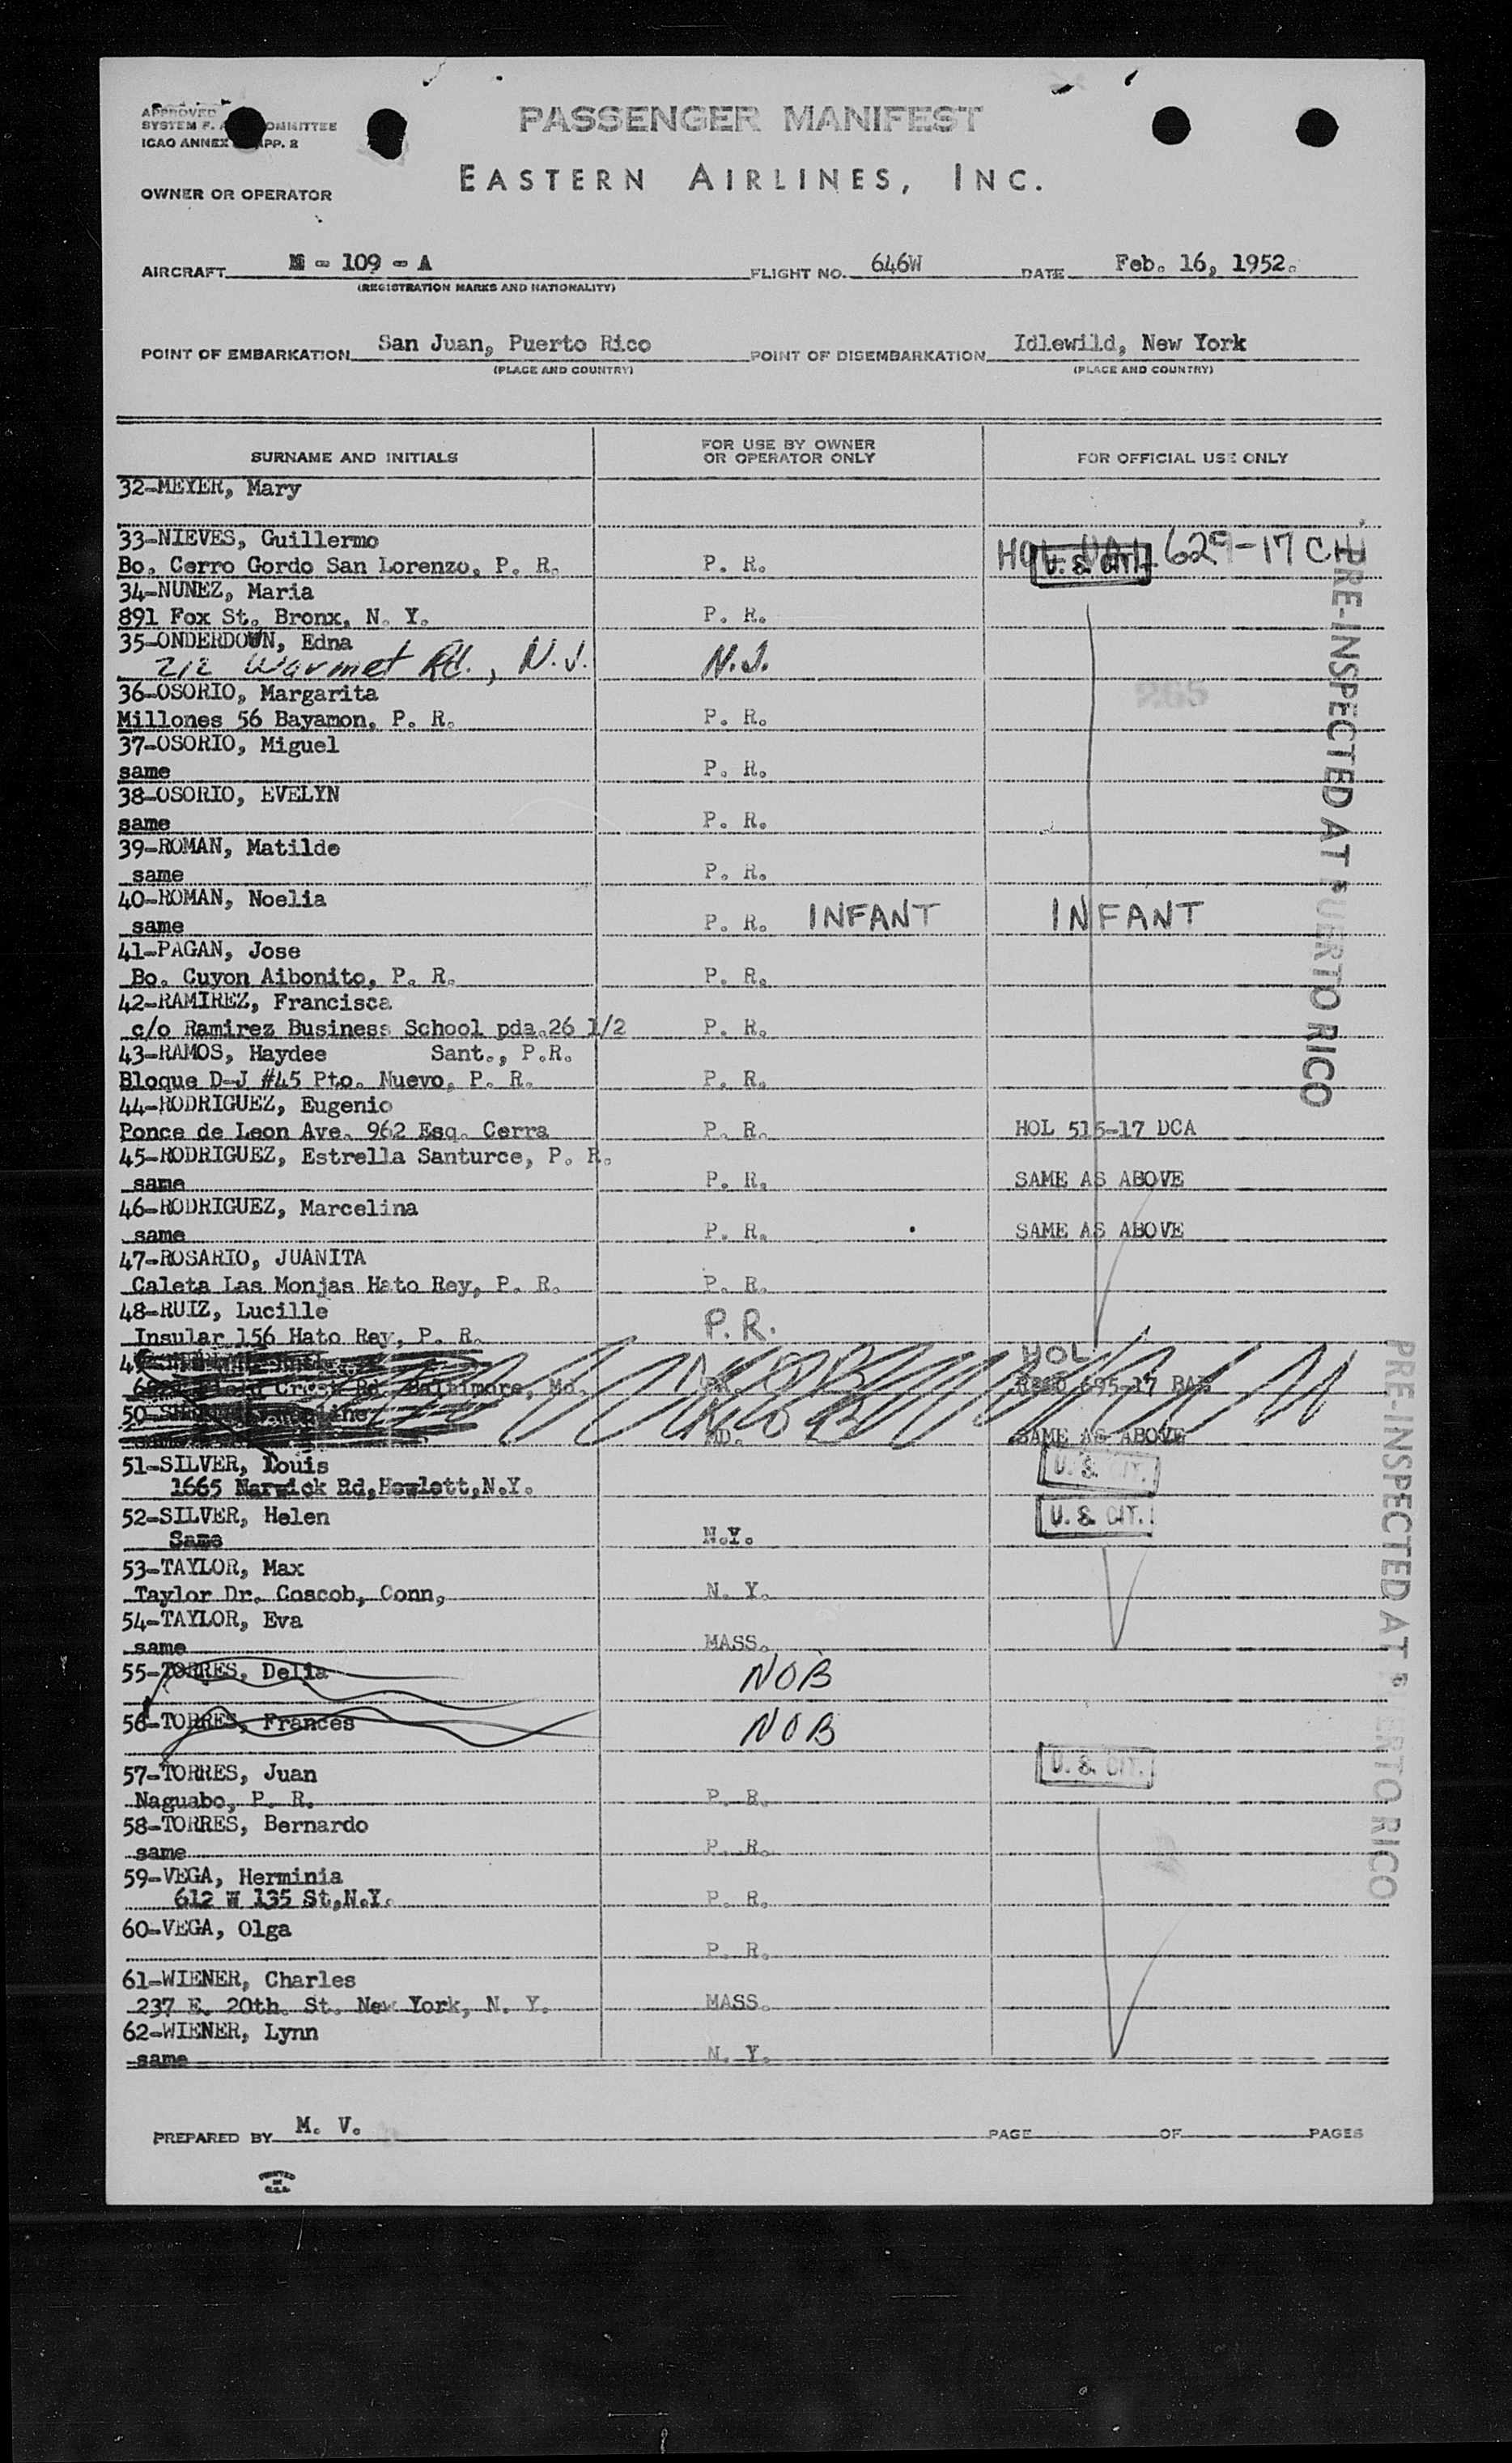 APPROVED
SYSTEM F. A. COMMITTEE
ICAO ANNEX APP. 2
PASSENGER MANIFEST
EASTERN AIRLINES, INC.
OWNER OR OPERATOR
AIRCRAFT N - 109 - A FLIGHT NO. 646W DATE Feb. 16, 1952.
(REGISTRATION MARKS AND NATIONALITY)
POINT OF EMBARKATION San Juan, Puerto Rico POINT OF DISEMBARKATION Idlewild, New York
(PLACE AND COUNTRY) (PLACE AND COUNTRY)
SURNAME AND INITIALS FOR USE BY OWNER OR OPERATOR ONLY FOR OFFICIAL USE ONLY
32-MEYER, Mary
33-NIEVES, Guillermo
Bo. Cerro Gordo San Lorenzo, P. R. P. R. HOL 629-17 CHI
U. S. CIT.
34-NUNEZ, Maria
891 Fox St. Bronx, N. Y. P. R.
35-ONDERDOWN, Edna
212 Warmet Rd., N.J. N.J.
36-OSORIO, Margarita
Millones 56 Bayamon, P. R. P. R.
265
37-OSORIO, Miguel
same P. R.
38-OSORIO, EVELYN
same P. R.
39-ROMAN, Matilde
same P. R.
40-ROMAN, Noelia
same P. R. INFANT INFANT
41-PAGAN, Jose
Bo. Cuyon Aibonito, P. R. P. R.
42-RAMIREZ, Francisca
c/o Ramirez Business School pda.26 1/2 P. R.
43-RAMOS, Haydee Sant., P.R.
Bloque D-J #45 Pto. Nuevo, P. R. P. R.
44-RODRIGUEZ, Eugenio
Ponce de Leon Ave. 962 Esq. Cerra P. R. HOL 515-17 DCA
45-RODRIGUEZ, Estrella Santurce, P. R.
same P. R. SAME AS ABOVE
46-RODRIGUEZ, Marcelina
same P. R. SAME AS ABOVE
47-ROSARIO, JUANITA
Caleta Las Monjas Hato Rey, P. R. P. R.
48-RUIZ, Lucille
Insular 156 Hato Rey, P. R. P.R.
HOL
Rd. Baltimore, Md. 695-17 BAL
50-
MD. SAME AS ABOVE
51-SILVER, Louis U. S. CIT.
1665 Narwick Rd,Hewlett,N.Y.
52-SILVER, Helen U. S. CIT.
Same N.Y.
53-TAYLOR, Max
Taylor Dr. Coscob, Conn, N. Y.
54-TAYLOR, Eva
same MASS.
55-TORRES, Delia NOB
56-TORRES, Frances NOB
57-TORRES, Juan U. S. CIT.
Naguabo, P. R. P. R.
58-TORRES, Bernardo
same P. R.
59-VEGA, Herminia
612 W 135 St,N.Y. P. R.
60-VEGA, Olga
P. R.
61-WIENER, Charles
237 E. 20th. St. New York, N. Y. MASS.
62-WIENER, Lynn
same N. Y.
PRE-INSPECTED AT PUERTO RICO
PRE-INSPECTED AT PUERTO RICO
PREPARED BY M. V. PAGE OF PAGES
PRINTED
IN
U.S.A.